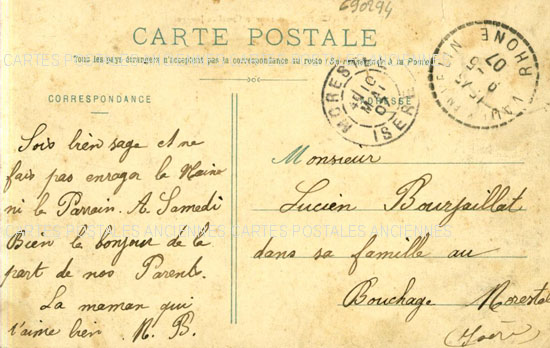 690294
CARTE POSTALE
Tous les pays étrangers n'acceptent pas la correspondance au recto (Se renseigner à la Poste)
CORRESPONDANCE
ADRESSE
MORESTEL
10
MAI
07
ISERE
RHONE
07
Sois bien sage et ne
fais pas enrager la Maine
ni le Parrain. A Samedi
Bien le bonjour de la
part de nos Parents.
La maman qui
t'aime bien M. B.
Monsieur
Lucien Bourjaillat
dans sa famille au
Bouchage Morestel
(Isère)
CARTES POSTALES ANCIENNES
CARTES POSTALES ANCIENNES